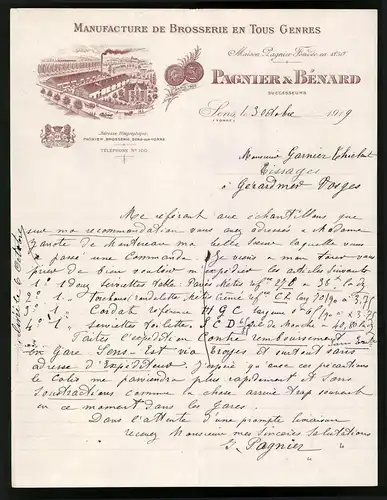 MANUFACTURE DE BROSSERIE EN TOUS GENRES
Maison Pagnier Fondée en 1850
PAGNIER & BÉNARD
SUCCESSEURS
Sens, le 3 octobre 1919
(YONNE)
Adresse Télégraphique:
PAGNIER, BROSSERIE, SENS-SUR-YONNE
TÉLÉPHONE Nº 100
Monsieur Garnier
Tissages
à Gérardmer Vosges
Me référant aux échantillons que
sur ma recommandation vous avez adressés à Madame
de Montereau ma belle soeur laquelle vous
a passé une Commande Je viens à mon tour vous
prier de bien vouloir m'expédier les articles suivants
1º 1 Douz serviettes table
2º 1
3º 1 référence H G C
4º 1 serviettes toilettes
Faites l'expédition Contre remboursement
en Gare Sens-Est via Troyes et surtout sans
adresse d'Expéditeur. J'espère qu'avec ces précautions
le colis me parviendra plus rapidement et sans
soustractions comme la chose arrive trop souvent
en ce moment dans les gares.
Dans l'attente d'une prompte livraison
recevez Monsieur mes sincères salutations
Pagnier